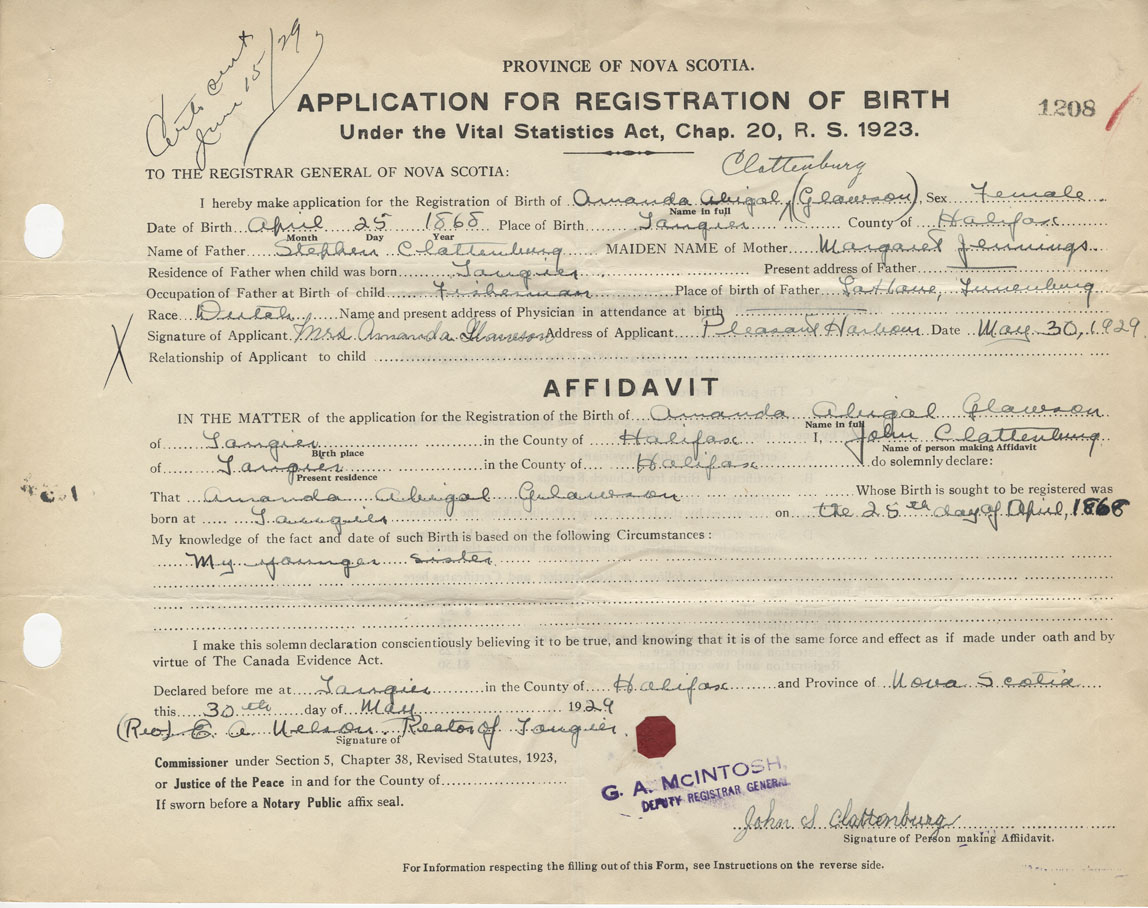 Certs sent
June 15/29
PROVINCE OF NOVA SCOTIA.
APPLICATION FOR REGISTRATION OF BIRTH
1208
Under the Vital Statistics Act, Chap. 20, R. S. 1923.
TO THE REGISTRAR GENERAL OF NOVA SCOTIA:
Clattenburg
I hereby make application for the Registration of Birth of Amanda Abigal (Glawson) Sex Female
Name in full
Date of Birth April 25 1868 Place of Birth Tangier County of Halifax
Month Day Year
Name of Father Stephen Clattenburg MAIDEN NAME of Mother Margaret Jennings
Residence of Father when child was born Tangier Present address of Father
Occupation of Father at Birth of child Fisherman Place of birth of Father LaHave, Lunenburg
Race Dutch Name and present address of Physician in attendance at birth
Signature of Applicant Mrs. Amanda Glawson Address of Applicant Pleasant Harbour Date May 30, 1929
Relationship of Applicant to child
X
AFFIDAVIT
IN THE MATTER of the application for the Registration of the Birth of Amanda Abigal Glawson
Name in full
of Tangier in the County of Halifax I, John Clattenburg
Birth place Name of person making Affidavit
of Tangier in the County of Halifax do solemnly declare:
Present residence
That Amanda Abigal Glawson Whose Birth is sought to be registered was
born at Tangier on the 25th day of April, 1868
My knowledge of the fact and date of such Birth is based on the following Circumstances:
My younger sister
I make this solemn declaration conscientiously believing it to be true, and knowing that it is of the same force and effect as if made under oath and by
virtue of The Canada Evidence Act.
Declared before me at Tangier in the County of Halifax and Province of Nova Scotia
this 30th day of May 1929
(Rev) E A Nelson Rector of Tangier.
Signature of
Commissioner under Section 5, Chapter 38, Revised Statutes, 1923,
or Justice of the Peace in and for the County of
If sworn before a Notary Public affix seal.
G. A. McINTOSH,
DEPUTY REGISTRAR GENERAL
John S Clattenburg
Signature of Person making Affiidavit.
For Information respecting the filling out of this Form, see Instructions on the reverse side.